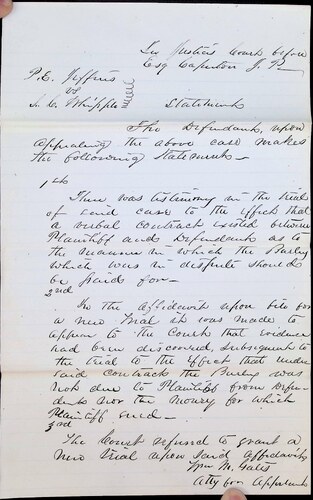 In Justices Court before
Esq Caperton J. P.
P. C. Jeffries
vs
S. C. Whipple
Statement
The Defendant, upon
appealing the above case makes
the following Statement—
1st
There was testimony in the trial
of said case to the effect that
a verbal contract existed between
Plaintiff and Defendant as to
the manner in which the Barley
which was in dispute should
be paid for—
2nd
In the affidavit upon file for
a new trial it was made to
appear to the Court that evidence
had been discovered, subsequent to
the trial to the effect that under
said contract the Barley was
not due to Plaintiff from Defen-
dant nor the money for which
Plaintiff sued—
3rd
The Court refused to grant a
new trial upon said affidavits
Wm M. Gates
Atty for Appellant